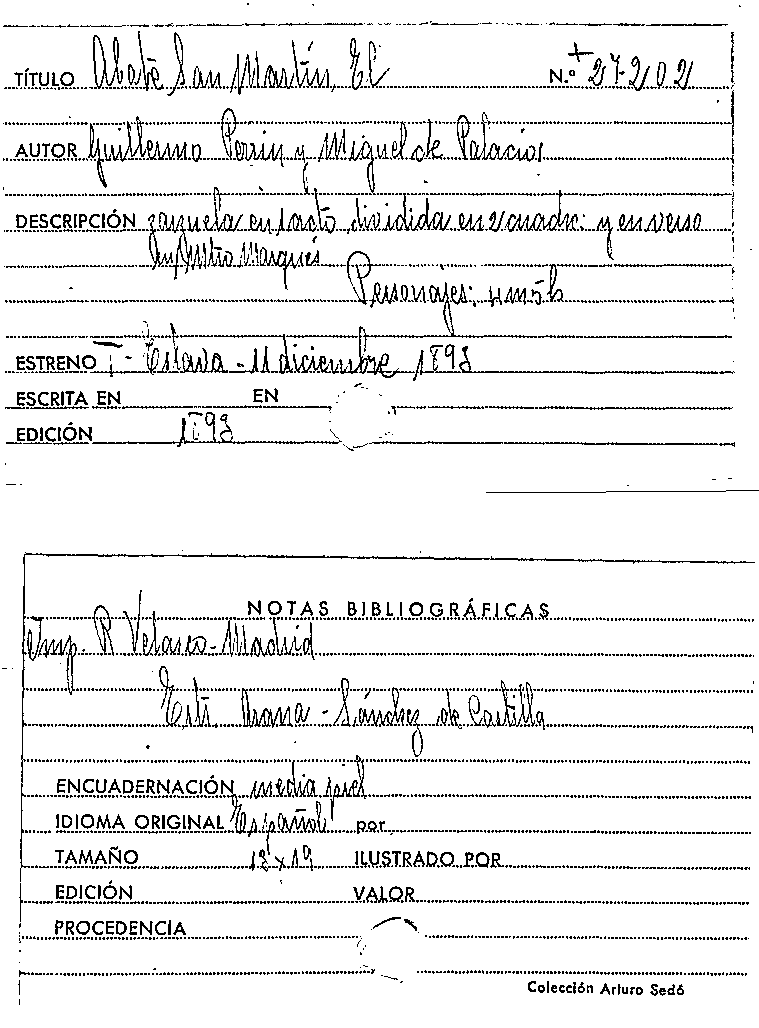 TÍTULO Abate San Martín, El N.º + 27202
AUTOR Guillermo Perrín y Miguel de Palacios
DESCRIPCIÓN zarzuela en 1 acto dividida en 2 cuadr: y en verso
Mtro Marqués
Personajes: 4m5h
ESTRENO T- Eslava - 11 diciembre 1898
ESCRITA EN EN
EDICIÓN 1898
NOTAS BIBLIOGRÁFICAS
Imp. R Velasco - Madrid
Estr. Arana - Sánchez de Castilla
ENCUADERNACIÓN media piel
IDIOMA ORIGINAL Español por
TAMAÑO 12x19 ILUSTRADO POR
EDICIÓN VALOR
PROCEDENCIA
Colección Arturo Sedó